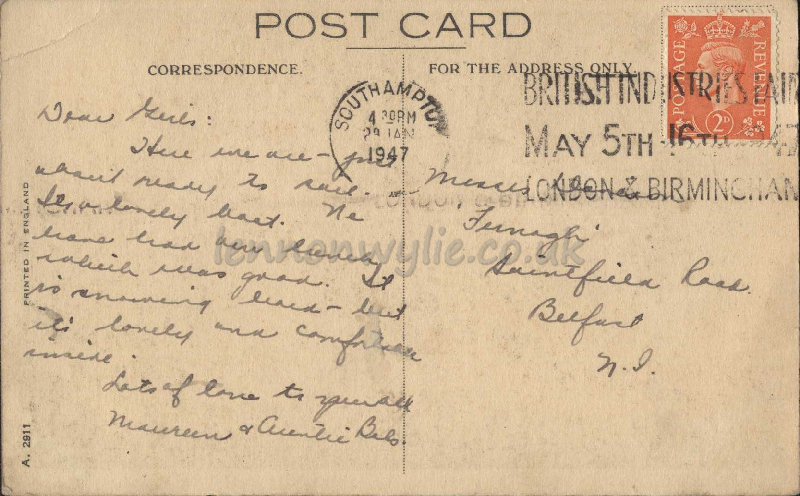 POST CARD
CORRESPONDENCE.
FOR THE ADDRESS ONLY.
SOUTHAMPTO
4 30PM
29 JAN
1947
BRITISH INDUSTRIES FAIR
MAY 5TH-16TH 1947
LONDON & BIRMINGHAM
POSTAGE
REVENUE
2D
Dear Girls:
Here we are - just
about ready to sail.
It's a lovely boat. We
have had our lunch
which was good. It
is snowing hard - but
it's lovely and comfortable
inside.
Lots of love to you all
Maureen & Auntie Babs.
Misses
Fernagh
Saintfield Road.
Belfast
N.I.
PRINTED IN ENGLAND
A. 2911
lennonwylie.co.uk